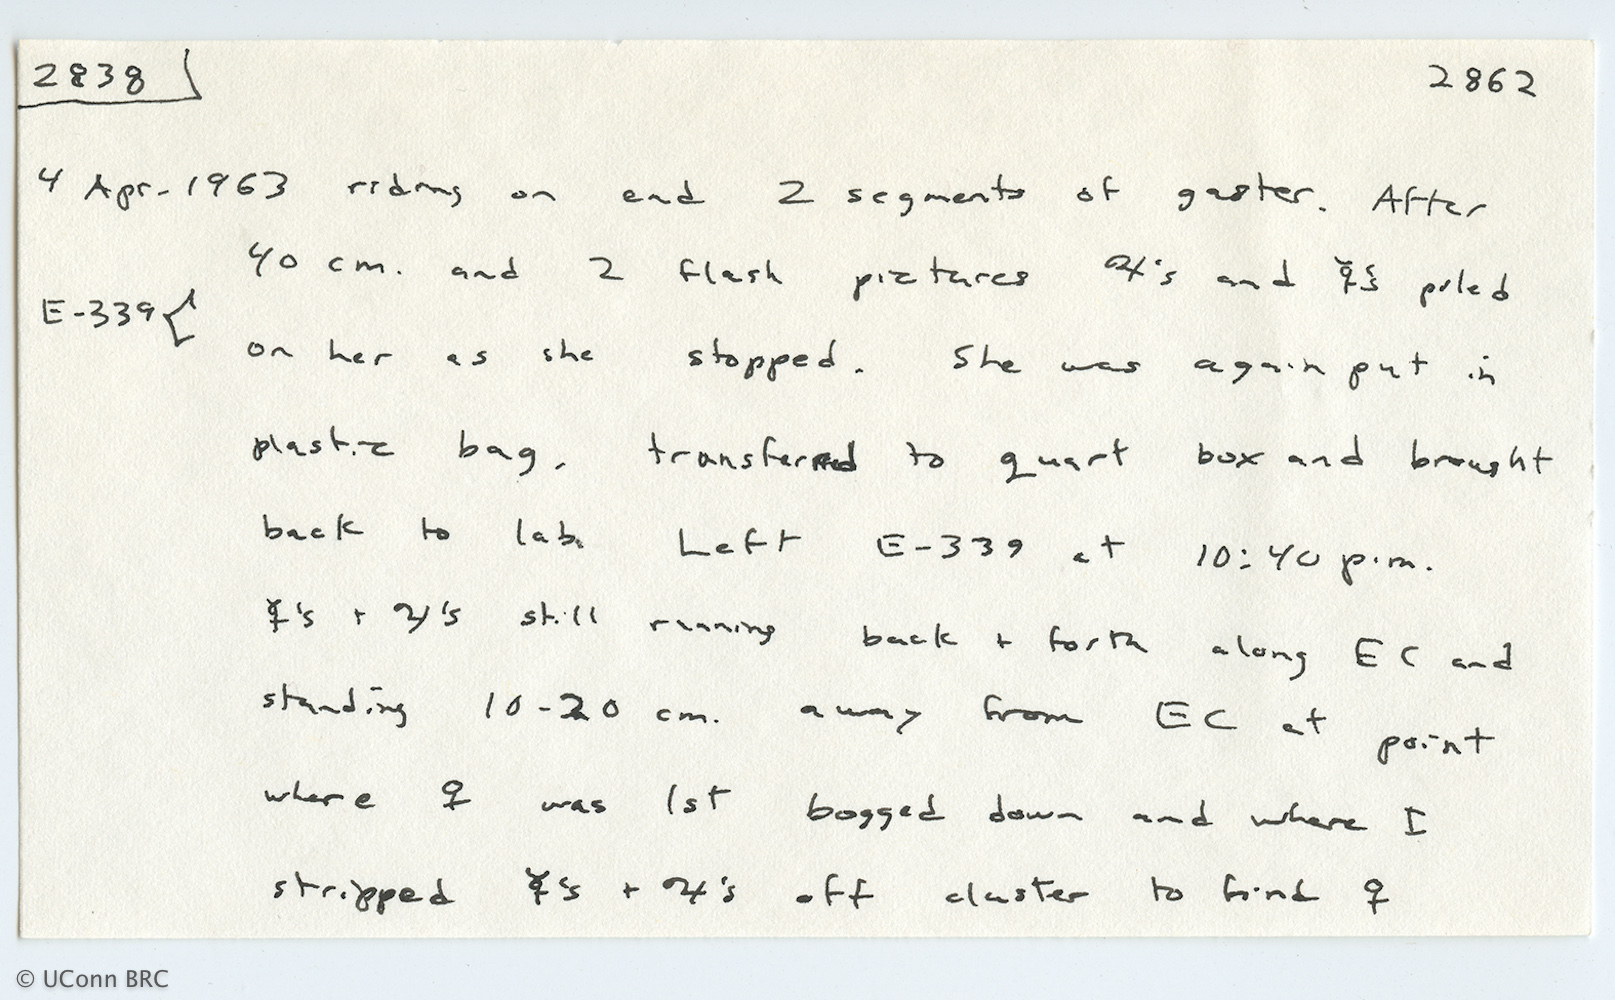 2838 2862
4 Apr-1963 riding on end 2 segments of gaster. After
40 cm. and 2 flash pictures ♃'s and ☿'s piled
E-339 {
on her as she stopped. She was again put in
plastic bag, transferred to quart box and brought
back to lab. Left E-339 at 10:40 p.m.
☿'s + ♃'s still running back + forth along EC and
standing 10-20 cm. away from EC at point
where ♀ was 1st bogged down and where I
stripped ☿'s + ♃'s off cluster to find ♀
© UConn BRC